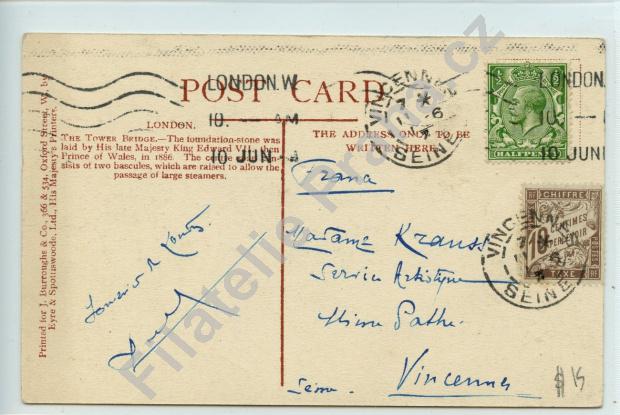 POST CARD
LONDON.W
10. — AM
10 JUN
LONDON.
10 JUN
VINCENNES
SEINE
HALFPENNY
LONDON.
THE TOWER BRIDGE.—The foundation-stone was
laid by His late Majesty King Edward VII. when
Prince of Wales, in 1886. The
sists of two bascules, which are raised to allow the
passage of large steamers.
THE ADDRESS ONLY TO BE
WRITTEN HERE
Printed for J. Burroughs & Co., 366 & 534, Oxford Street, W., by
Eyre & Spottiswoode, Ltd., His Majesty's Printers.
Madame Krauss
Service Artistique
Vincennes
Seine
CHIFFRE
10 CENTIMES
À PERCEVOIR
TAXE
VINCENNES
SEINE
$ 15
Filatelie Praha.cz